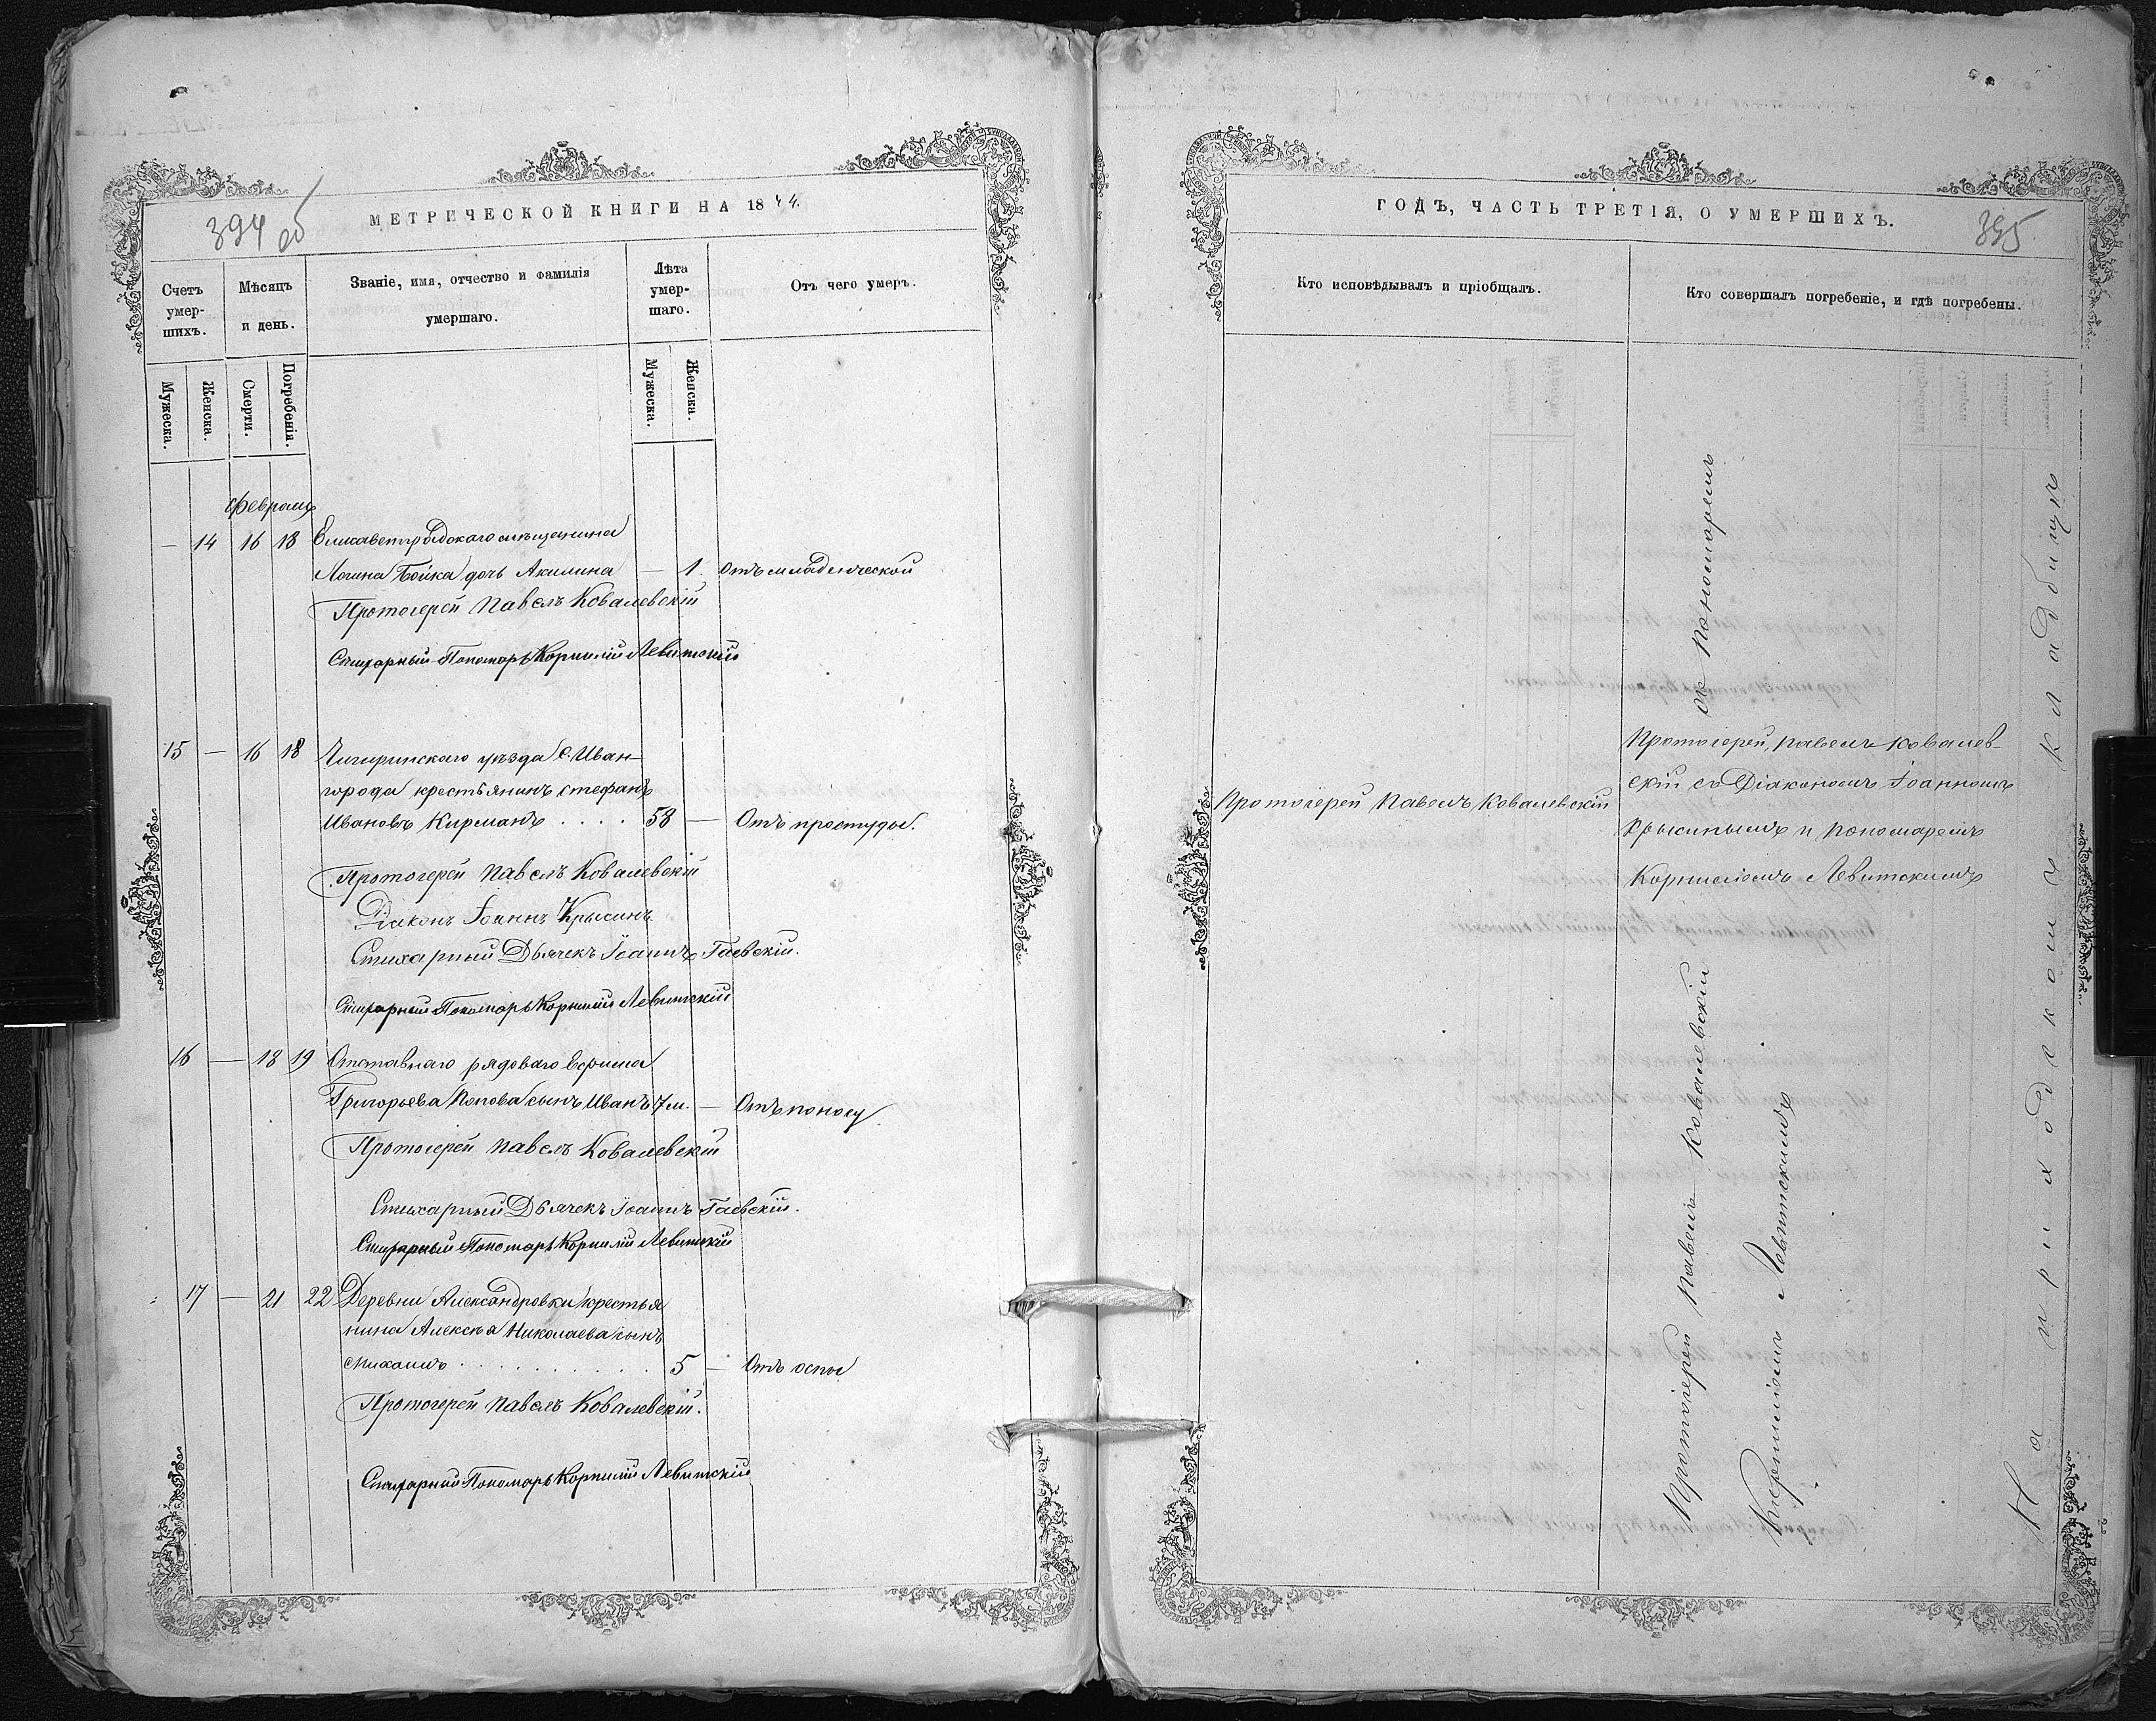 394 об
МЕТРИЧЕСКОЙ КНИГИ НА 1844.
Счетъ умер-шихъ.
Мѣсяцъ и день.
Званіе, имя, отчество и фамилія умершаго.
Лѣта умер-шаго.
Отъ чего умеръ.
Мужеска.
Женска.
Смерти.
Погребенія.
Мужеска.
Женска.
Февраль
— 14 16 18 Елисаветградскаго мѣщанина
Логина Бойка дочь Акилина — 1 Отъ младенческой
Протоіерей Павелъ Ковалевскій
Стихарный Пономарь Корнилій Левитскій
15 — 16 18 Чигиринскаго уѣзда С. Иван-
города крестьянинъ Стефанъ
Ивановъ Кирманъ . . . . 58 — Отъ простуды.
Протоіерей Павелъ Ковалевскій
Діаконъ Іоаннъ Крысинъ
Стихарный Дьячекъ Іоаннъ Гаевскій.
Стихарный Пономарь Корнилій Левитскій
16 — 18 19 Отставнаго рядоваго Ефима
Григорьева Попова сынъ Иванъ 7 м. — Отъ поносу
Протоіерей Павелъ Ковалевскій
Стихарный Дьячекъ Іоаннъ Гаевскій.
Стихарный Пономарь Корнилій Левитскій
17 — 21 22 Деревни Александровки крестья
нина Алексѣя Николаева сынъ
Михаилъ . . . . . . . . . . 5 — Отъ оспы
Протоіерей Павелъ Ковалевскій.
Стихарный Пономарь Корнилій Левитскій
ГОДЪ, ЧАСТЬ ТРЕТІЯ, О УМЕРШИХЪ.
395
Кто исповѣдывалъ и пріобщалъ.
Кто совершалъ погребеніе, и гдѣ погребены.
Протоіерей Павелъ Ковалевскій
Протоіерей Павелъ Ковалев-
скій съ Діакономъ Іоанномъ
Крысинымъ и Пономаремъ
Корниліемъ Левитскимъ
Протоіерей Павелъ Ковалевскій съ Пономаремъ
Корниліемъ Левитскимъ
На приходскомъ кладбищѣ